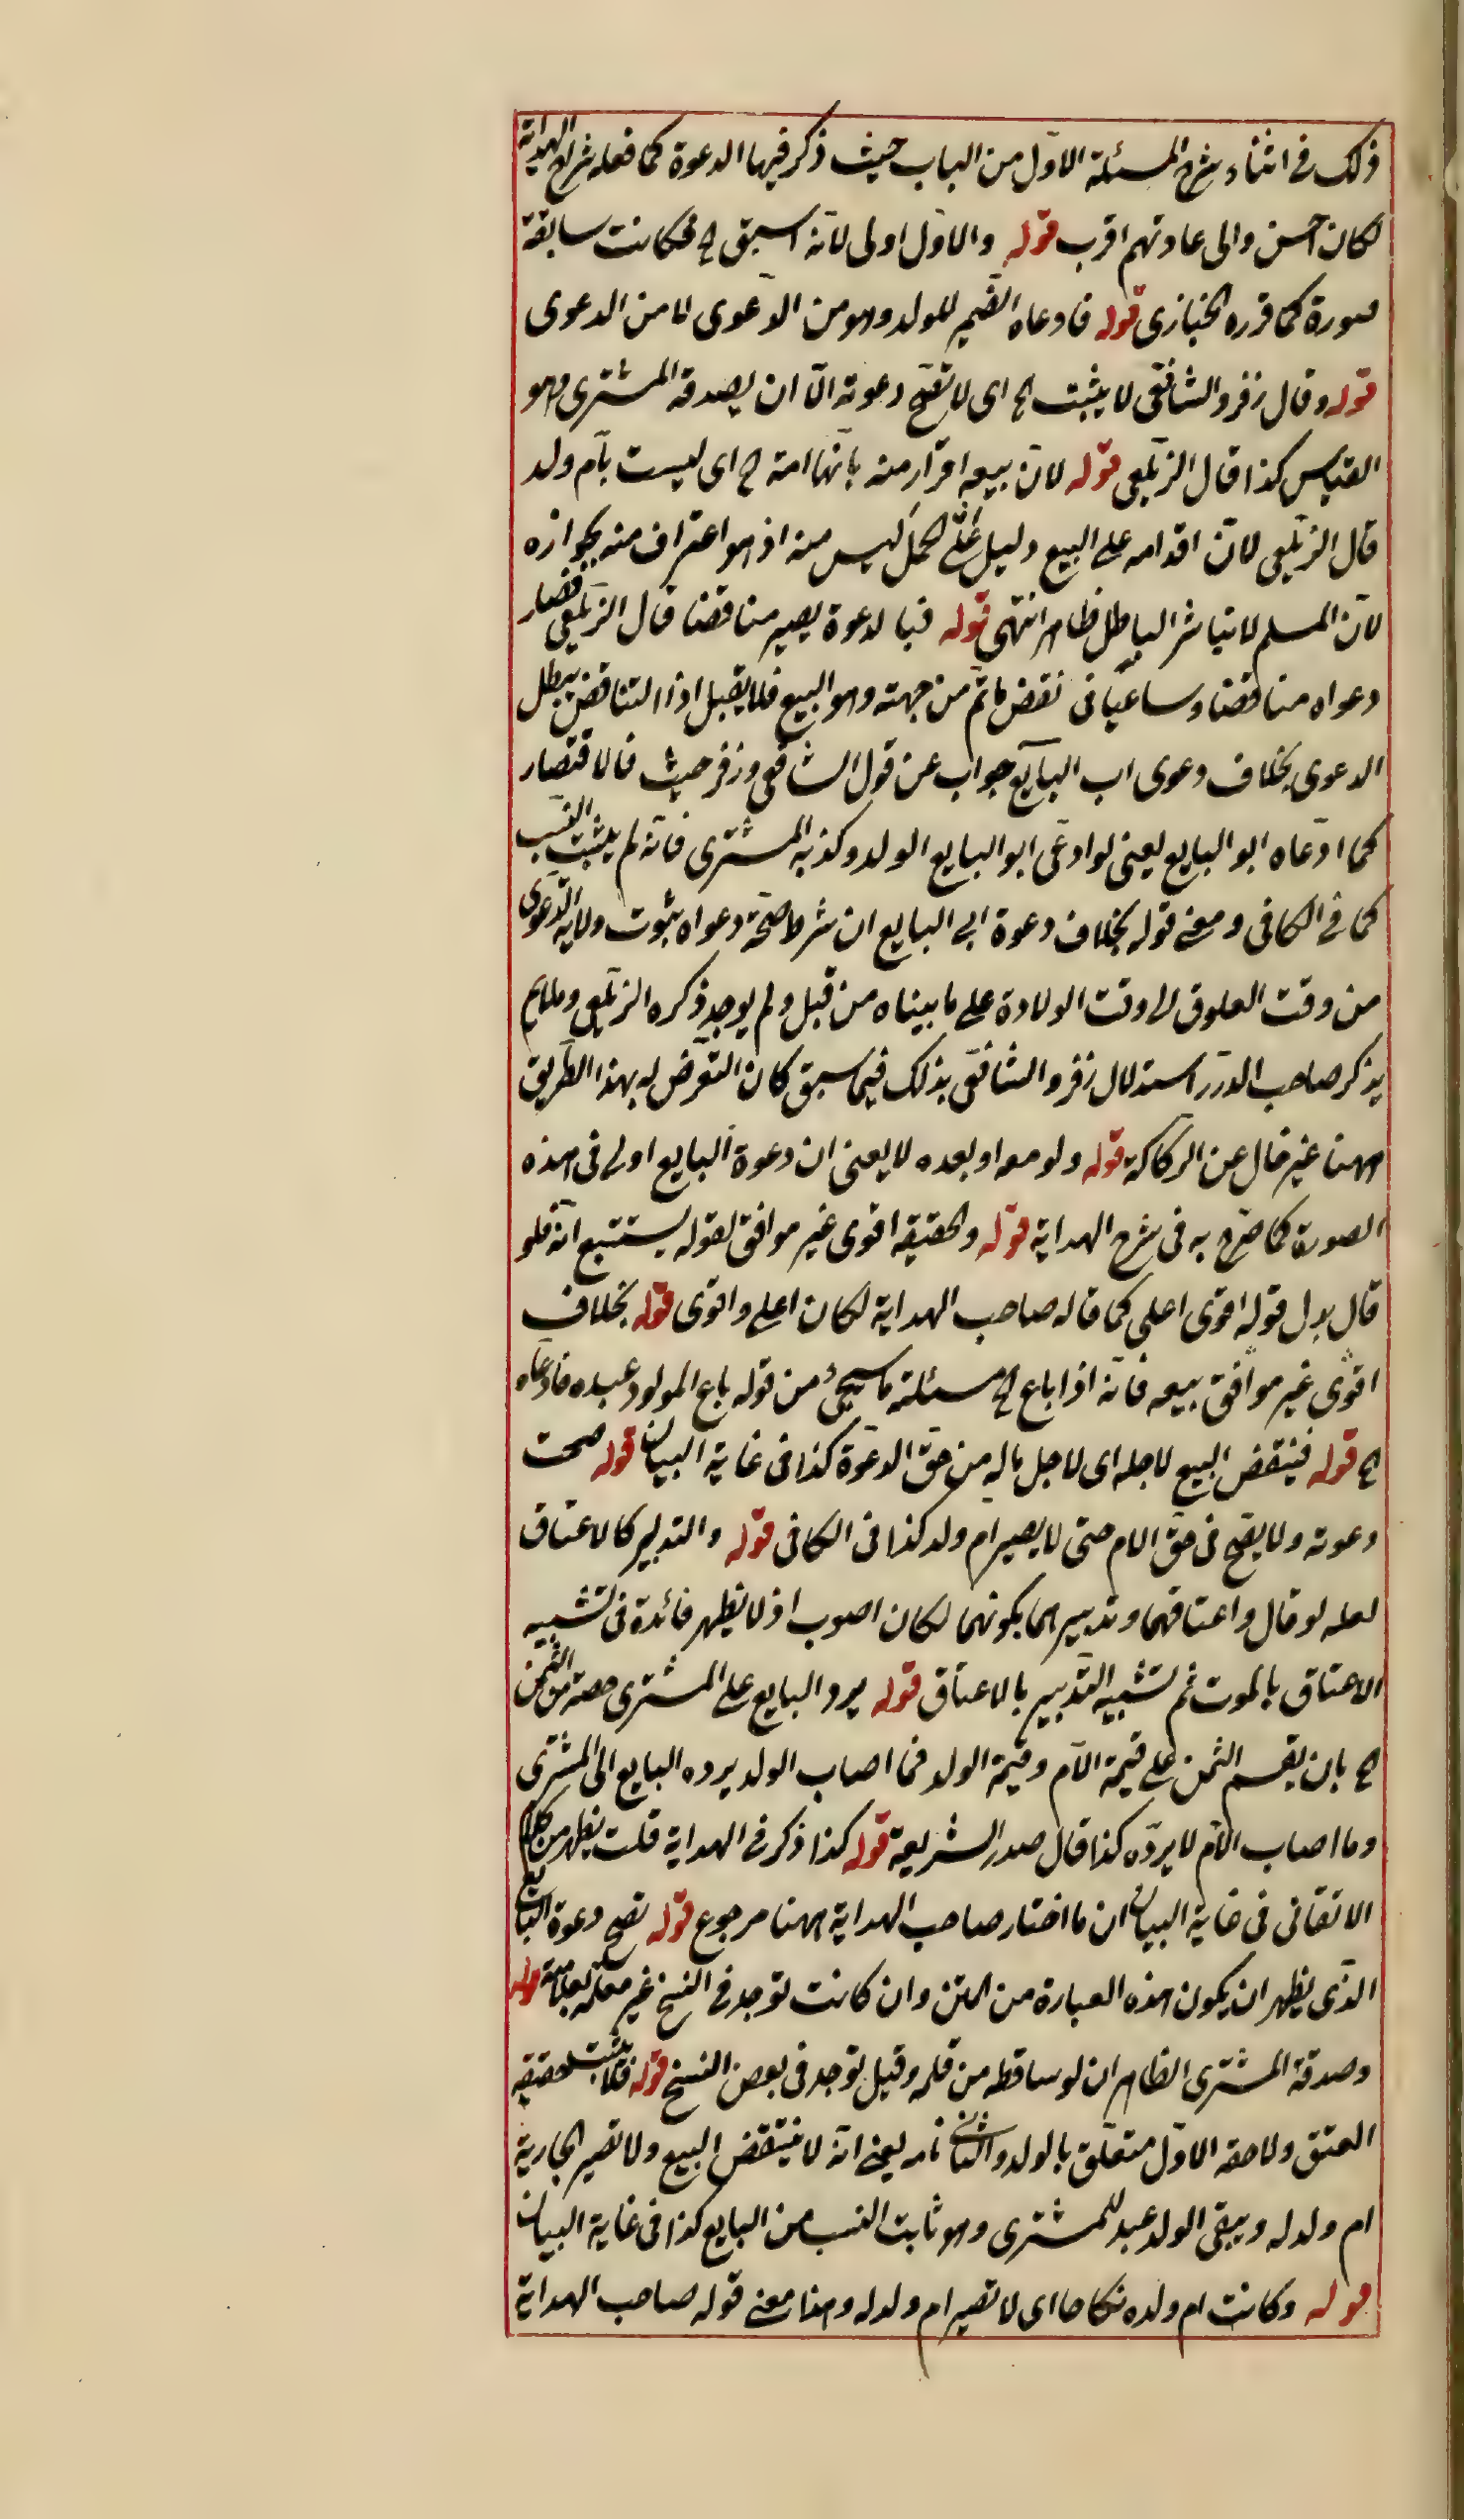 ذلك فى اثناء شرح المسئلة الاول من الباب حيث ذكر فيها الدعوة كما فعله شراح الهداية
لكان احسن والى عادتهم اقرب قوله والاول اولى لانه اسبق الخ فكانت سابقة
صورة كما قرره الخبازى قوله فادعاه الضمير للولد وهو من الدعوى لا من الدعوى
قوله وقال زفر والشافعى لا يثبت الخ اى لا تصح دعوته الا ان يصدقه المشترى وهو
القياس كذا قال الزيلعى قوله لان بيعه اقرار منه بانها امة الخ اى ليست بام ولد
قال الزيلعى لان اقدامه على البيع دليل على الحمل ليس منه اذ هو اعتراف منه بجوازه
لان المسلم لا يباشر الباطل ظاهرا انتهى قوله فبالدعوة يصير مناقضا قال الزيلعى فصار
دعواه مناقضا وساعيا فى نقض ماتم من جهته وهو البيع فلا يقبل اذ التناقض يبطل
الدعوى بخلاف دعوى اب البايع جواب عن قول الشافعى وزفر حيث قالا فصار
كما ادعاه ابو البايع يعنى لو ادعى ابو البايع الولد وكذبه المشترى فانه لم يثبت النسب
كما فى الكافى ومعنى قوله بخلاف دعوة ابى البايع ان شرط صحة دعواه ثبوت ولاية الدعوى
من وقت العلوق الى وقت الولادة على ما بيناه من قبل ولم يوجد ذكره الزيلعى ولما لم
يذكر صاحب الدرر استدلال زفر والشافعى بذلك فيما سبق كان التعرض له بهذا الطريق
ههنا غير خال عن الركاكة قوله ولو معه او بعده لا يعنى ان دعوة البايع اولى فى هذه
الصورة كما صرح به فى شرح الهداية قوله والحقيقة اقوى غير موافق لقوله يستتبع انه فلو
قال بدل قوله اقوى اعلى كما قاله صاحب الهداية لكان اعلى واقوى قوله بخلاف
اقوى غير موافق بيعه فانه اذا باع الخ مسئلة ما سيجئ من قوله باع المولود عبده فادعاه
الخ قوله فينقض البيع لاجله اى لاجل ماله من حق الدعوة كذا فى غاية البيان قوله صحت
دعوته ولا يصح فى حق الام حتى لا يصير ام ولد كذا فى الكافى قوله والتدبير كالاعتاق
لعله لو قال واعتاقهما وتدبيرهما بكونهما لكان اصوب اذ لا يظهر فائدة فى تشبيه
الاعتاق بالموت ثم تشبيه التدبير بالاعتاق قوله يرد البايع على المشترى حصته من الثمن
الخ بان يقسم الثمن على قيمة الام وقيمة الولد فما اصاب الولد يرده البايع الى المشترى
وما اصاب الام لا يرده كذا قال صدر الشريعة قوله كذا ذكر فى الهداية قلت يظهر من كلام
الاتقانى فى غاية البيان ان ما اختار صاحب الهداية ههنا مرجوع قوله تصح دعوة البايع
الذى يظهر ان يكون هذه العبارة من المتن وان كانت توجد فى النسخ غير معلمة بعلامته قوله
وصدقه المشترى الظاهر ان لو ساقطه من قلمه وقيل توجد فى بعض النسخ قوله فلا يثبت حقيقة
العتق ولا حقه الاول متعلق بالولد والثانى بامه يعنى انه لا ينتقض البيع ولا تصير الجارية
ام ولد له ويبقى الولد عبد للمشترى وهو ثابت النسب من البايع كذا فى غاية البيان
قوله وكانت ام ولده نكاحا اى لا تصير ام ولد له وهذا معنى قوله صاحب الهداية